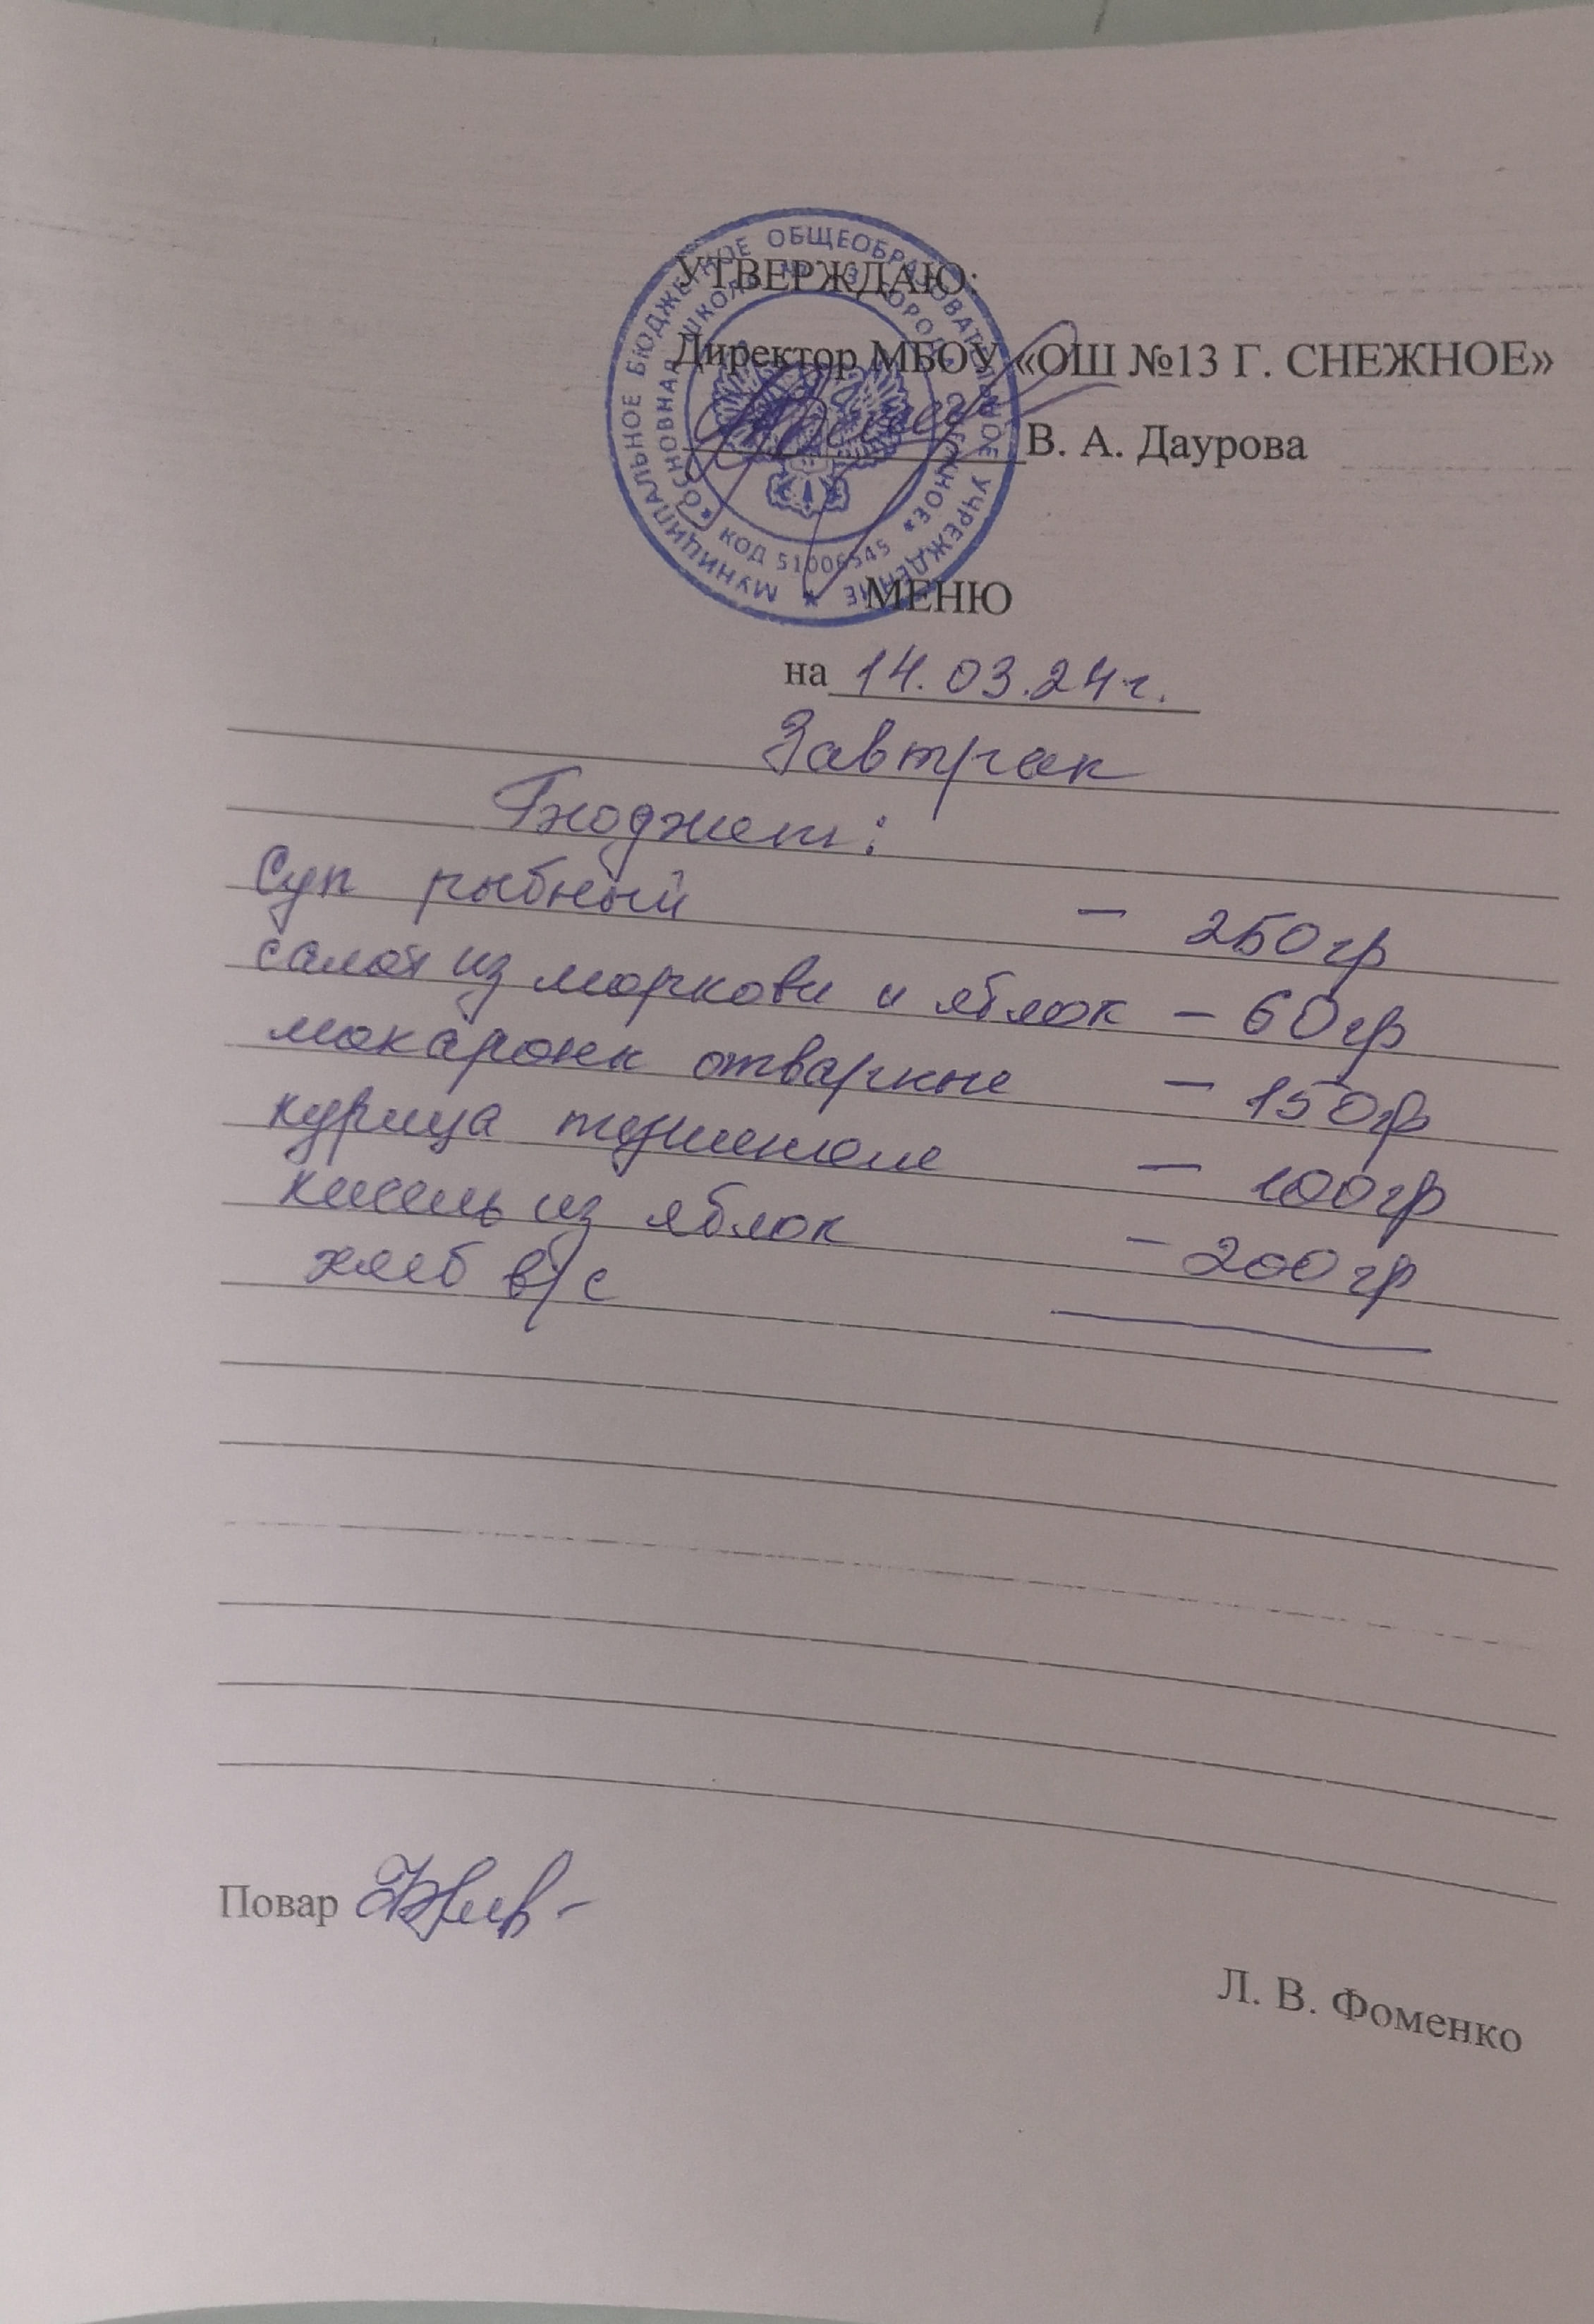 УТВЕРЖДАЮ:
Директор МБОУ «ОШ №13 Г. СНЕЖНОЕ»
В. А. Даурова
МУНИЦИПАЛЬНОЕ БЮДЖЕТНОЕ ОБЩЕОБРАЗОВАТЕЛЬНОЕ УЧРЕЖДЕНИЕ
«ОСНОВНАЯ ШКОЛА № 13 ГОРОДА СНЕЖНОЕ»
КОД 51006545
МЕНЮ
на 14.03.24г.
Завтрак
Бюджет:
Суп рыбный – 250гр
салат из моркови и яблок – 60гр
макароны отварные – 150гр
курица тушеная – 100гр
кисель из яблок – 200гр
хлеб в/с
Повар
Л. В. Фоменко